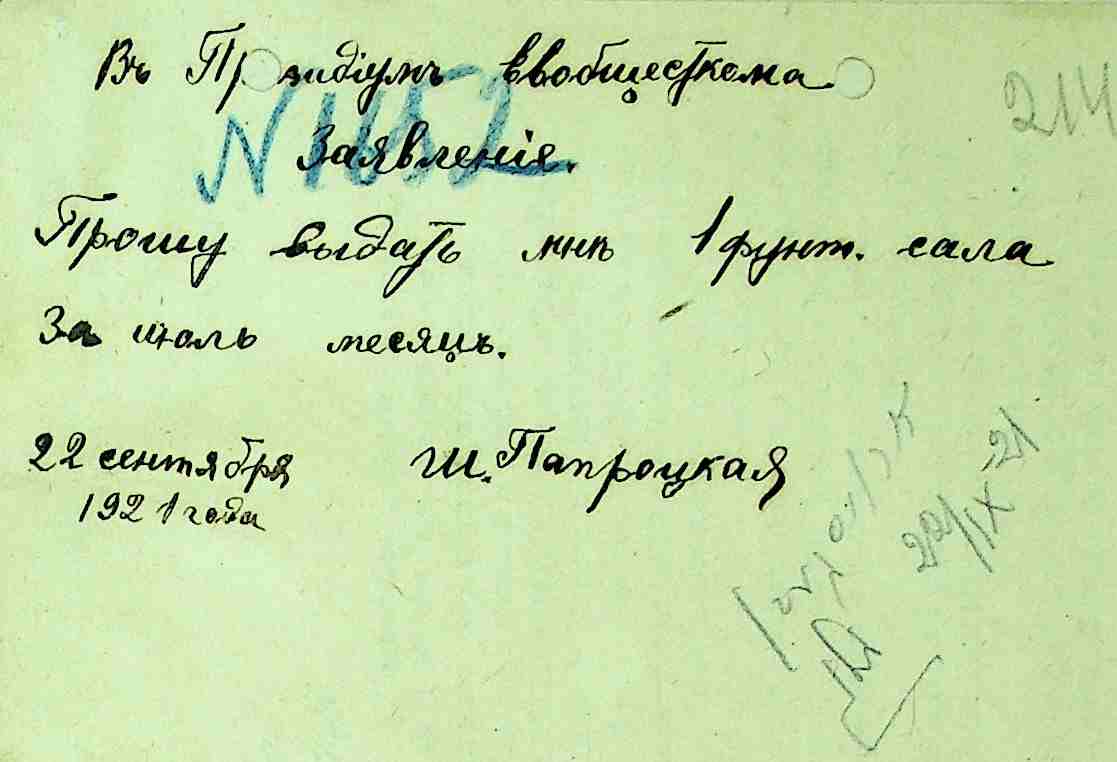 Въ Президіумъ Евобщесткома
214
N 1652
Заявленіе.
Прошу выдать мнѣ 1 фунт. сала
За июль месяцъ.
22 сентября
1921 года
Ш. Папроцкая
22/IX-21